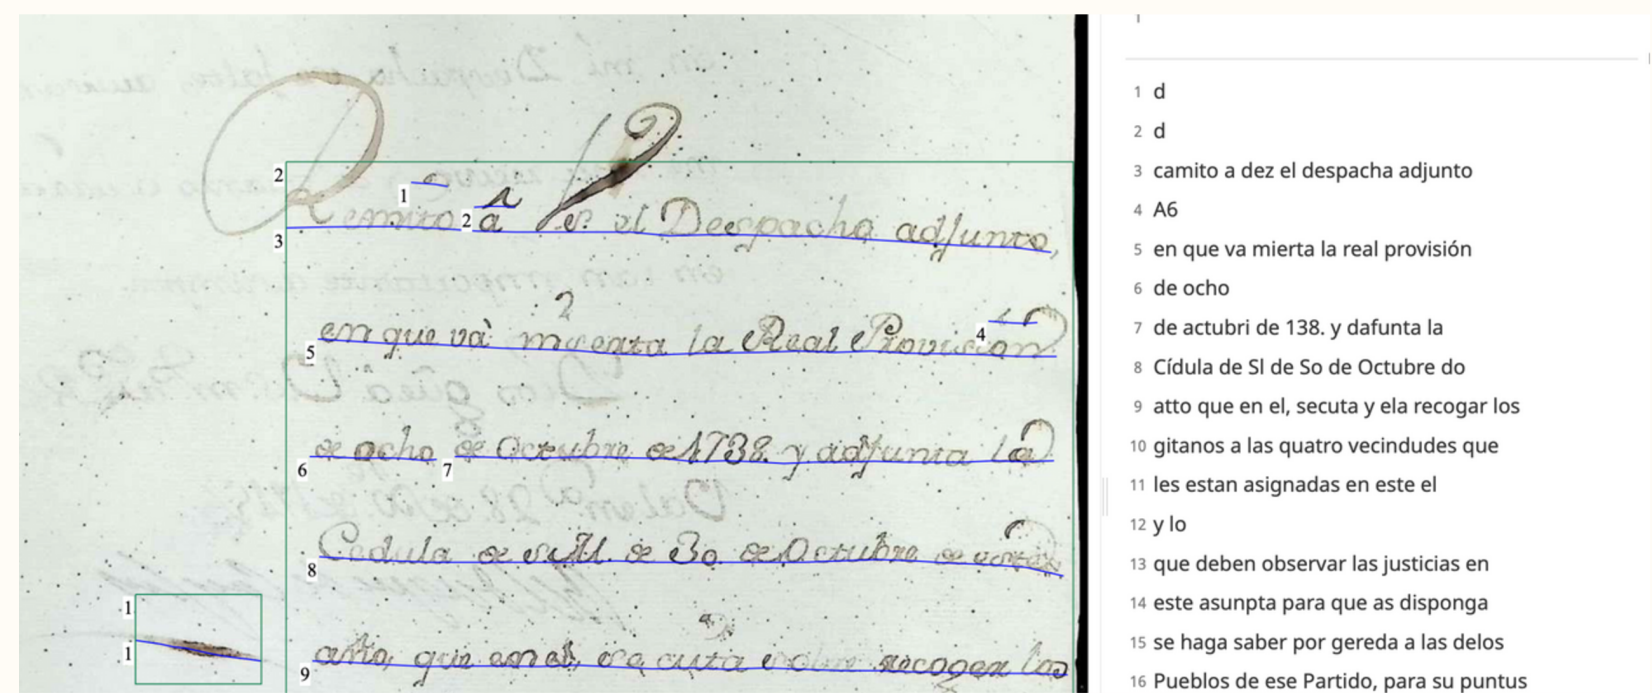 Remito a el Despacho adjunto,
en que và la Real Provision
de ocho de Octubre de 1738. y adjunta la
Cedula de S.M. de 30 de Octubre de
año, que en el, sobre recoger los
1
1
2
1
2
3
4
5
6
7
8
9
1
1 d
2 d
3 camito a dez el despacha adjunto
4 A6
5 en que va mierta la real provisión
6 de ocho
7 de actubri de 138. y dafunta la
8 Cídula de Sl de So de Octubre do
9 atto que en el, secuta y ela recogar los
10 gitanos a las quatro vecindudes que
11 les estan asignadas en este el
12 y lo
13 que deben observar las justicias en
14 este asunpta para que as disponga
15 se haga saber por gereda a las delos
16 Pueblos de ese Partido, para su puntus